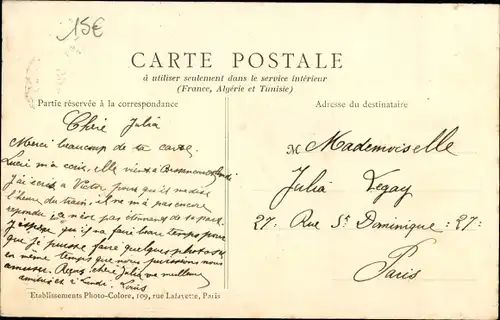 15€
CARTE POSTALE
à utiliser seulement dans le service intérieur
(France, Algérie et Tunisie)
Partie réservée à la correspondance
Chère Julia
Merci beaucoup de ta carte.
elle vient à
J'ai écris à Victor pour qu'il me dise
l'heure du train, il ne m'a pas encore
répondu, ça n'est pas étonnant de sa part.
J'espère qu'il va faire beau temps pour
que je puisse faire quelques photos
en même temps que nous puissions nous
amuser. Reçois chère Julia ma meilleure
amitié et à Lundi. Louis
Adresse du destinataire
M Mademoiselle
Julia Legay
27: Rue St Dominique: 27:
Paris
Etablissements Photo-Colore, 109, rue Lafayette, Paris